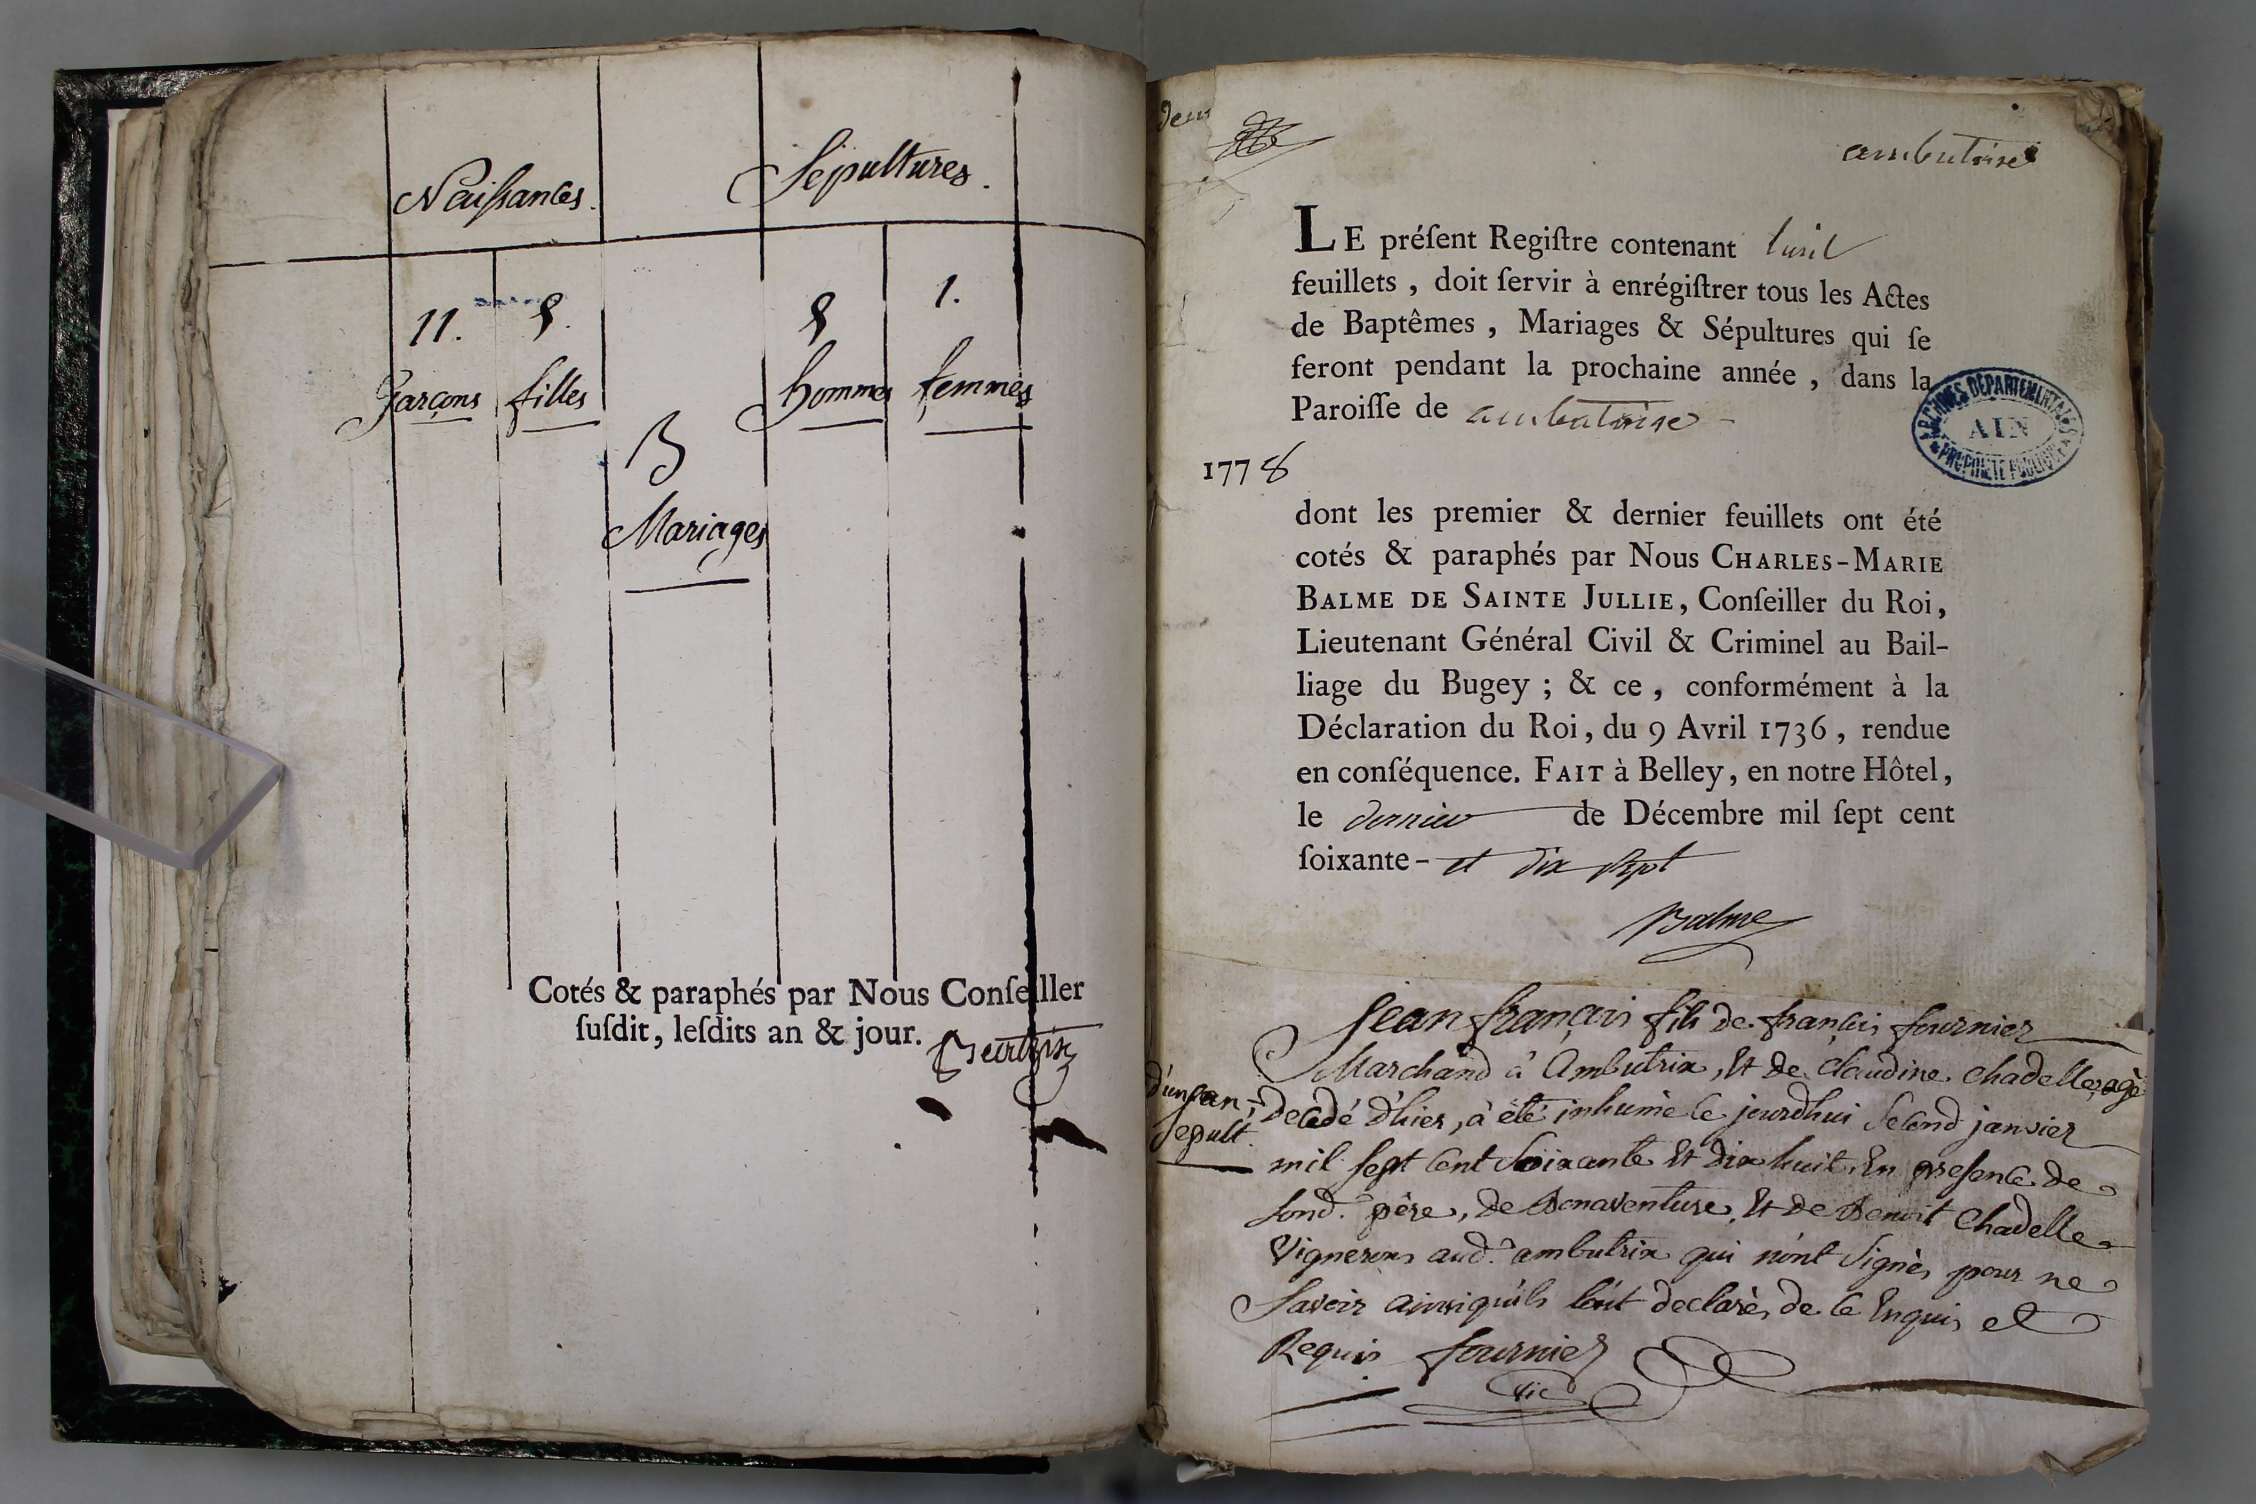 Naissances.
Sépultures.
11.
8.
8
1.
Garçons
filles
hommes
femmes
3
Mariages
Cotés & paraphés par Nous Conſeiller
ſuſdit, leſdits an & jour.
LE préſent Regiſtre contenant
feuillets, doit ſervir à enrégiſtrer tous les Actes
de Baptêmes, Mariages & Sépultures qui ſe
feront pendant la prochaine année, dans la
Paroiſſe de
ARCHIVES DEPARTEMENTALES
AIN
PROPRIETE PUBLIQUE
1778
dont les premier & dernier feuillets ont été
cotés & paraphés par Nous CHARLES-MARIE
BALME DE SAINTE JULLIE, Conſeiller du Roi,
Lieutenant Général Civil & Criminel au Bail-
liage du Bugey ; & ce, conformément à la
Déclaration du Roi, du 9 Avril 1736, rendue
en conſéquence. FAIT à Belley, en notre Hôtel,
le dernier de Décembre mil ſept cent
ſoixante- et dix sept
Balme
Jean françois fils de françois fournier
Marchand à Ambutrix, Et de Claudine Chadelle, agé
d'un an, decedé d'hier, à été inhumé le jourdhui second janvier
Sepult.
mil sept cent soixante Et dix huit, En presence de
sond. père, de Bonaventure, Et de Benoit Chadelle
Vignerons aud. ambutrix qui n'ont signés pour ne
savoir ainsi qu'ils l'ont declaré, de ce Enquis et
Requis fournier
vic